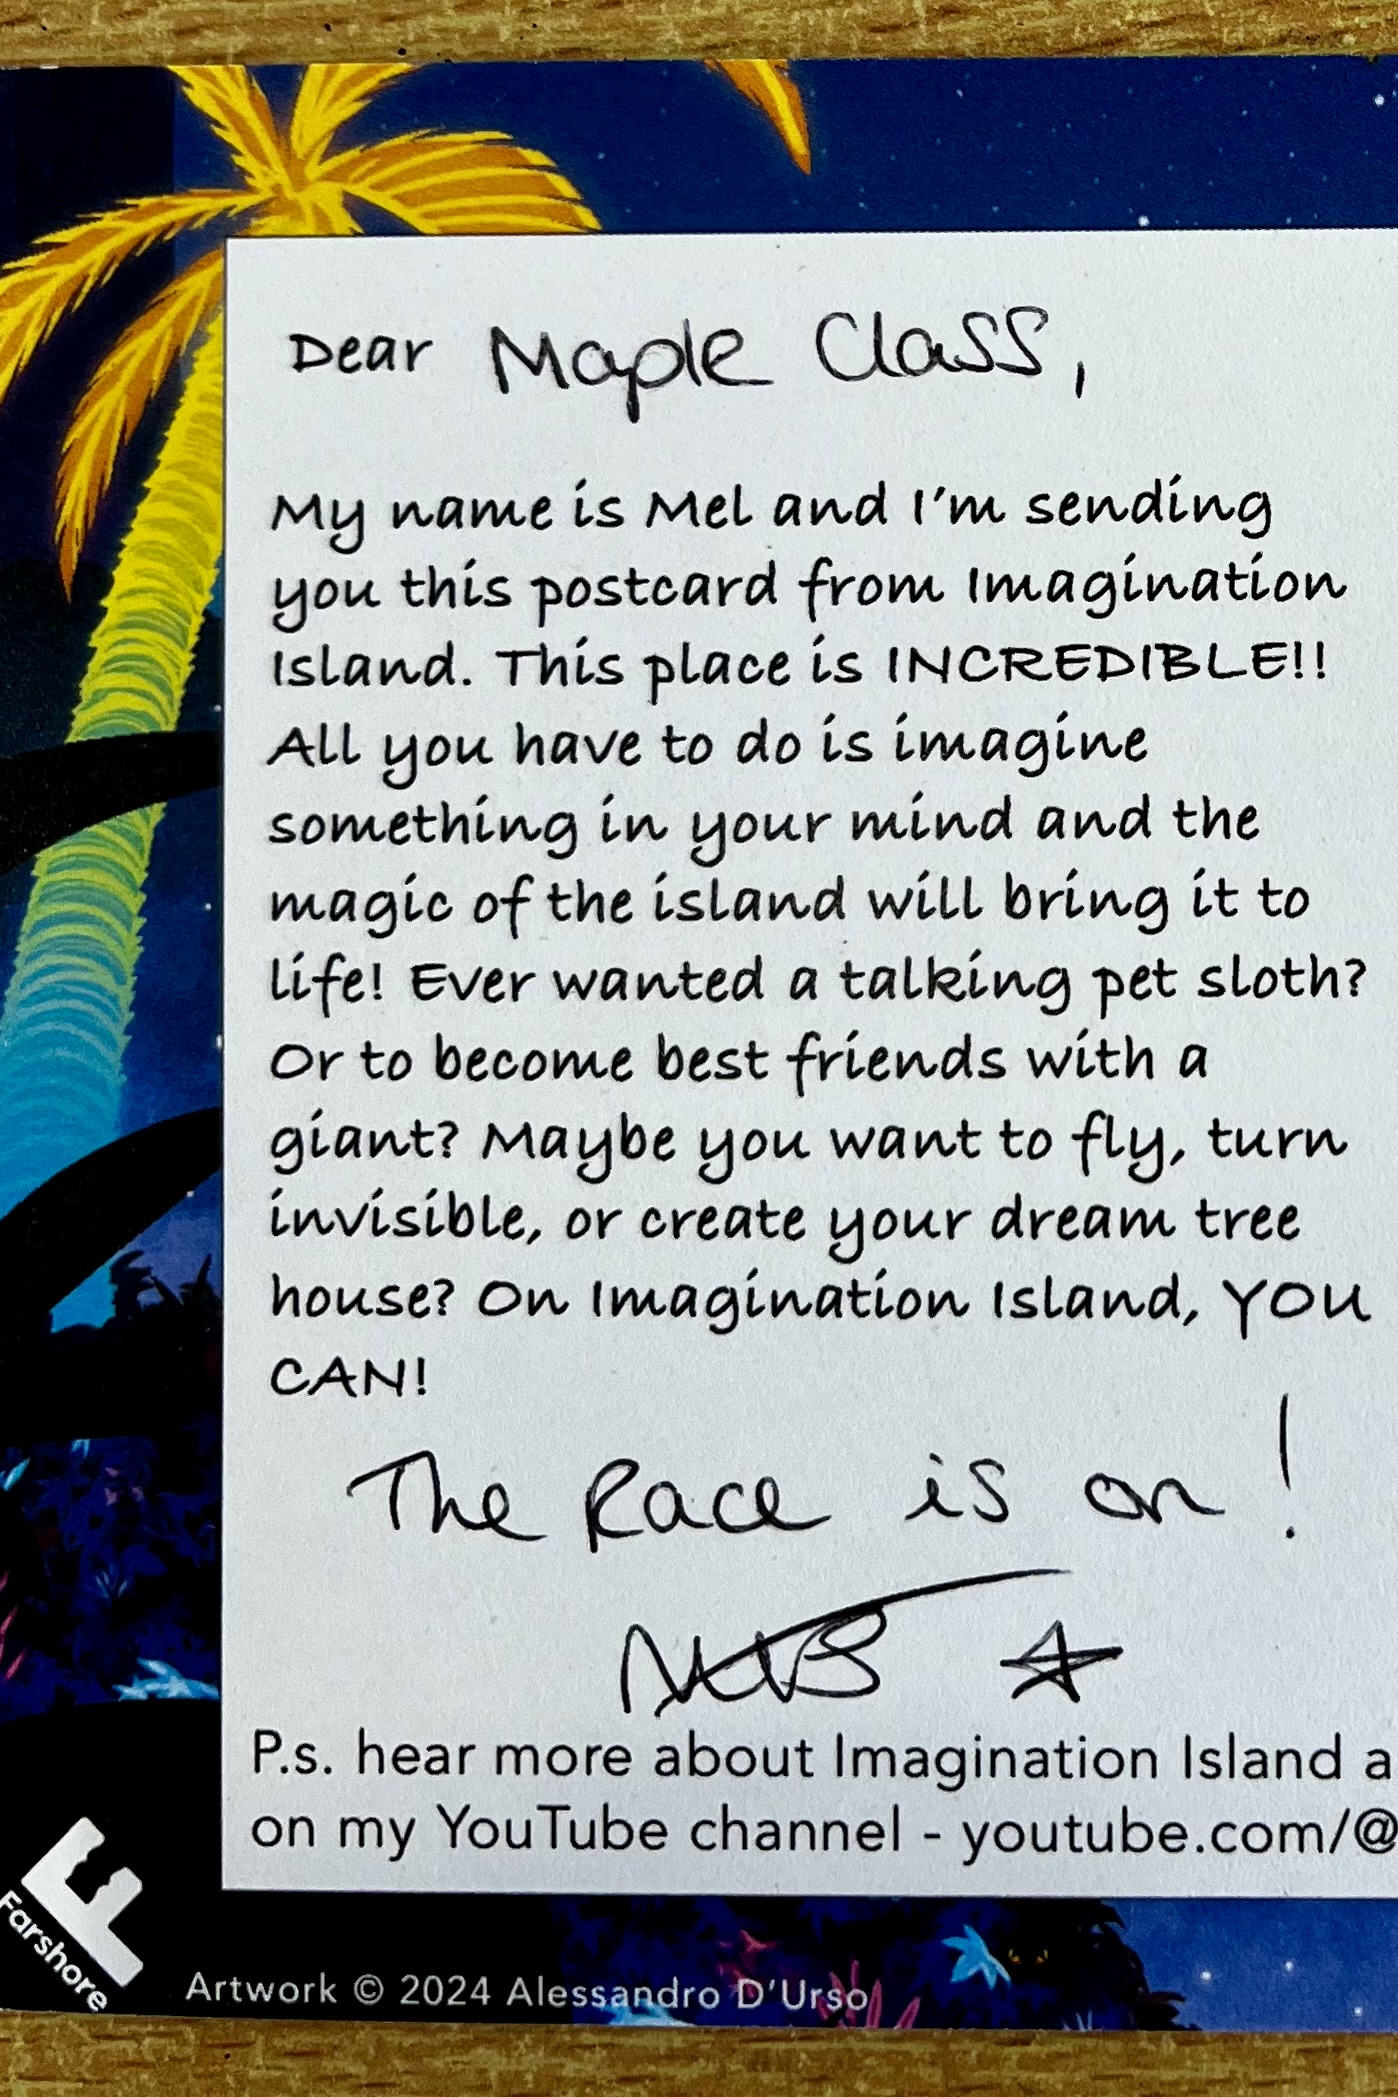 Dear Maple Class,
My name is Mel and I'm sending
you this postcard from Imagination
Island. This place is INCREDIBLE!!
All you have to do is imagine
something in your mind and the
magic of the island will bring it to
life! Ever wanted a talking pet sloth?
Or to become best friends with a
giant? Maybe you want to fly, turn
invisible, or create your dream tree
house? On Imagination Island, YOU
CAN!
The Race is on!
P.s. hear more about Imagination Island a
on my YouTube channel - youtube.com/@
Farshore
Artwork © 2024 Alessandro D'Urso